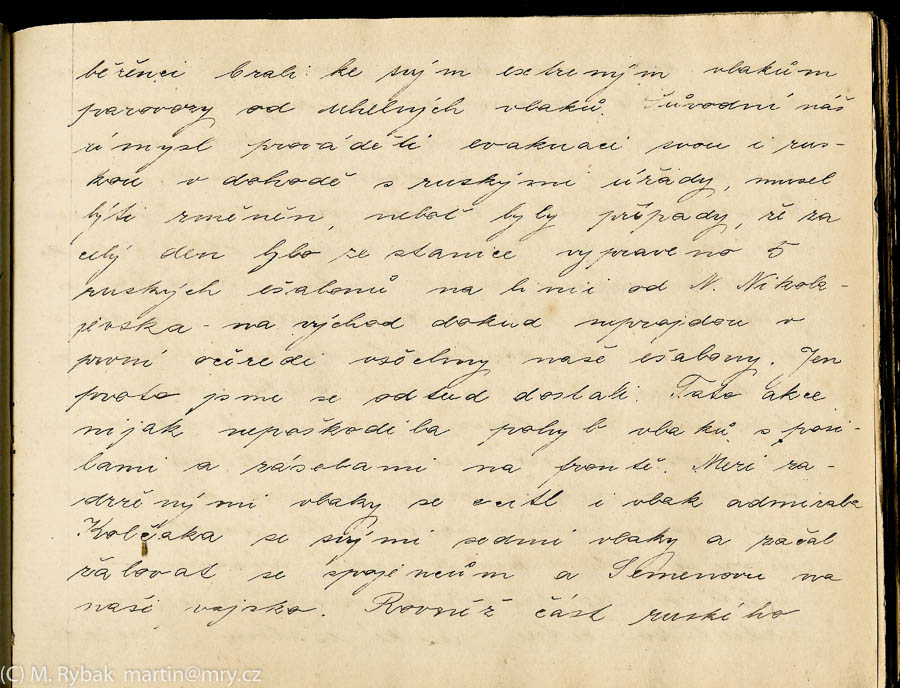 běženci brali ke svým extreným vlakům
parovozy od uhelných vlaků. Původní náš
úmysl prováděti evakuaci svou i rus-
kou v dohodě s ruskými úřady, musel
býti změněn, neboť byly případy, že za
celý den bylo ze stanice vypraveno 5
ruských ešalonů na linii od N. Nikola-
jevska - na východ dokud neprojdou v
první očeredi všechny naše ešalony. Jen
proto jsme se odtud dostali. Tato akce
nijak nepoškodila pohyb vlaků s posi-
lami a zásobami na frontě. Mezi za-
drženými vlaky se ocitl i vlak admirala
Kolčaka se svými sedmi vlaky a začal
žalovat se spojencům a Semenovu na
naše vojsko. Rovněž část ruského
(C) M. Rybak martin@mry.cz